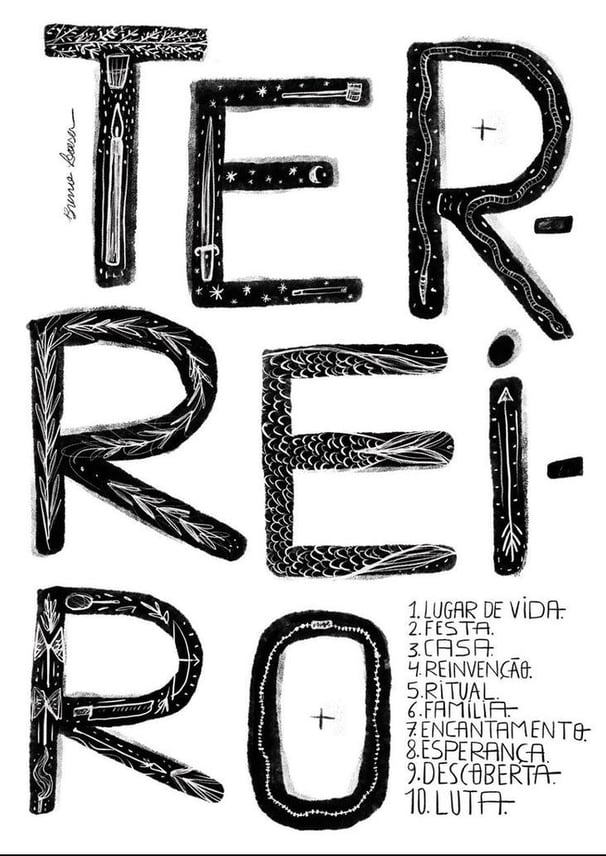 TER-
REi-
RO
1. LUGAR DE ViDA.
2. FESTA.
3. CASA.
4. REINVENÇÃO.
5. RITUAL.
6. FAMÍLIA.
7. ENCANTAMENTO.
8. ESPERANÇA.
9. DESCOBERTA.
10. LUTA.